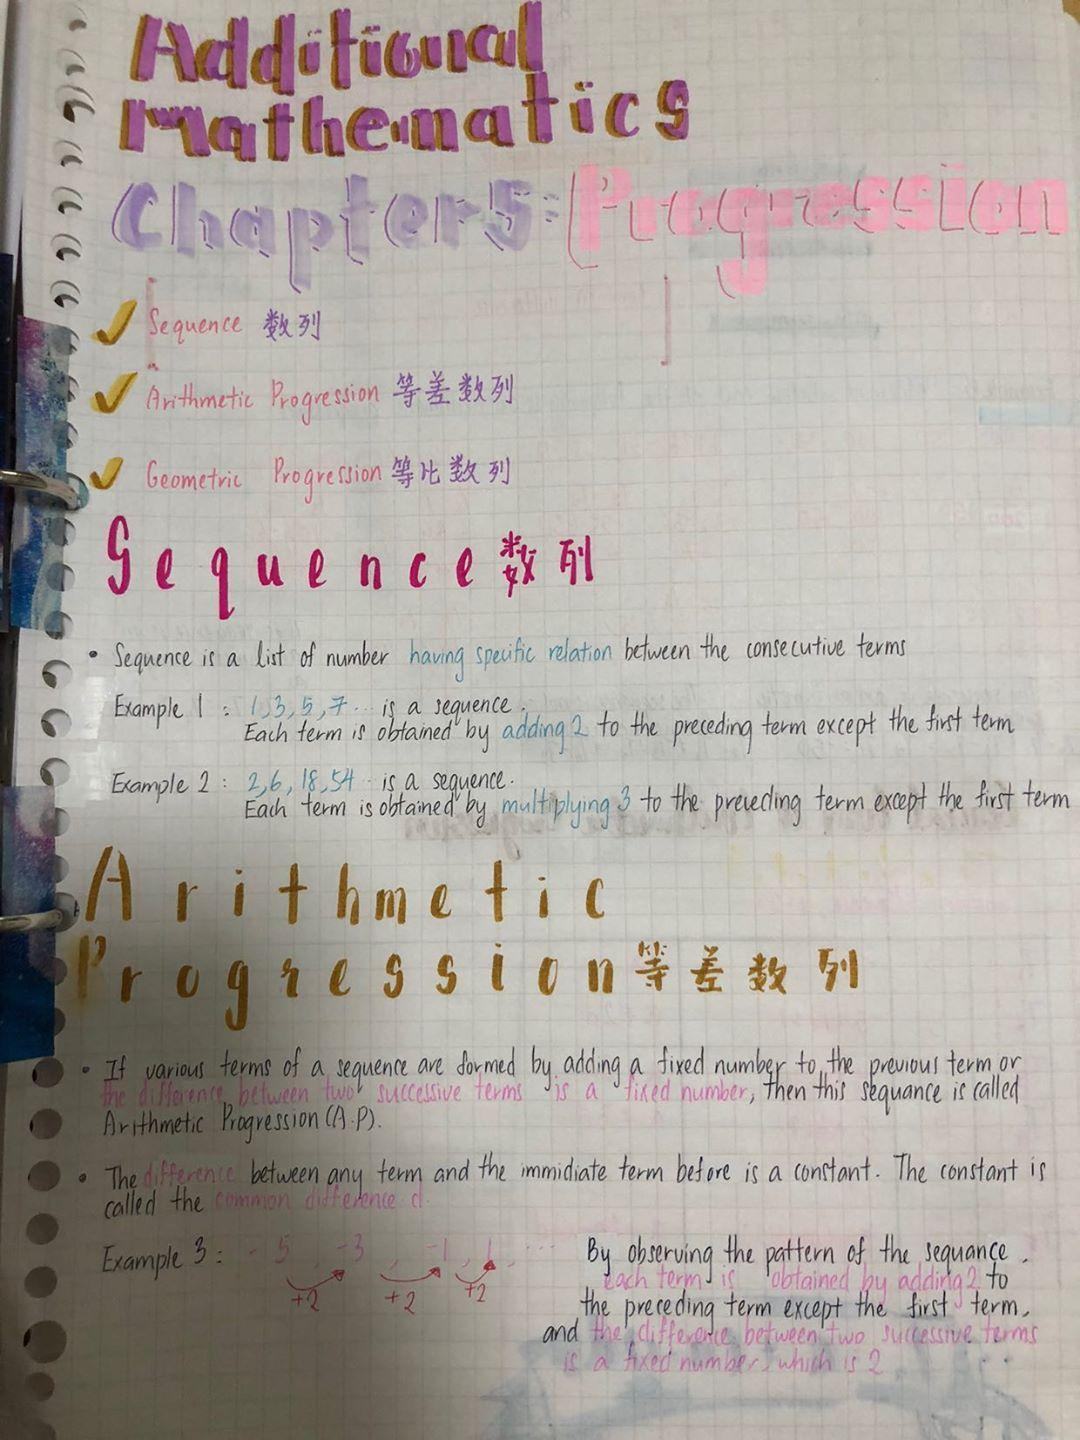 Additional
Mathematics
Chapter 5: Progression
Sequence 数列
Arithmetic Progression 等差数列
Geometric Progression 等比数列
Sequence 数列
• Sequence is a list of number having specific relation between the consecutive terms
Example 1 : 1,3,5,7... is a sequence.
Each term is obtained by adding 2 to the preceding term except the first term
Example 2 : 2,6,18,54... is a sequence.
Each term is obtained by multiplying 3 to the preceding term except the first term
Arithmetic
Progression 等差数列
• If various terms of a sequence are formed by adding a fixed number to the previous term or
the difference between two successive terms is a fixed number, then this sequance is called
Arithmetic Progression (A.P).
• The difference between any term and the immidiate term before is a constant. The constant is
called the common difference d.
Example 3 : -5, -3, -1, 1, ...
+2 +2 +2
By observing the pattern of the sequance,
each term is obtained by adding 2 to
the preceding term except the first term,
and the difference between two successive terms
is a fixed number, which is 2